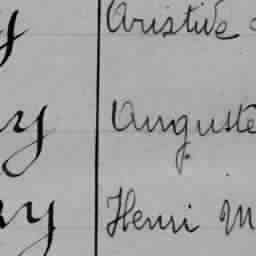 y Aristide
y Auguste
y Henri M